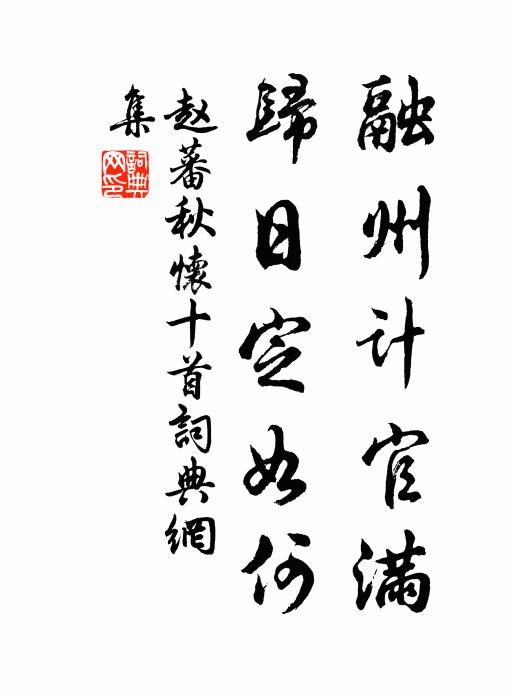 融州计官满
歸日定如何
赵蕃秋懷十首詞典網
集
詞典网印